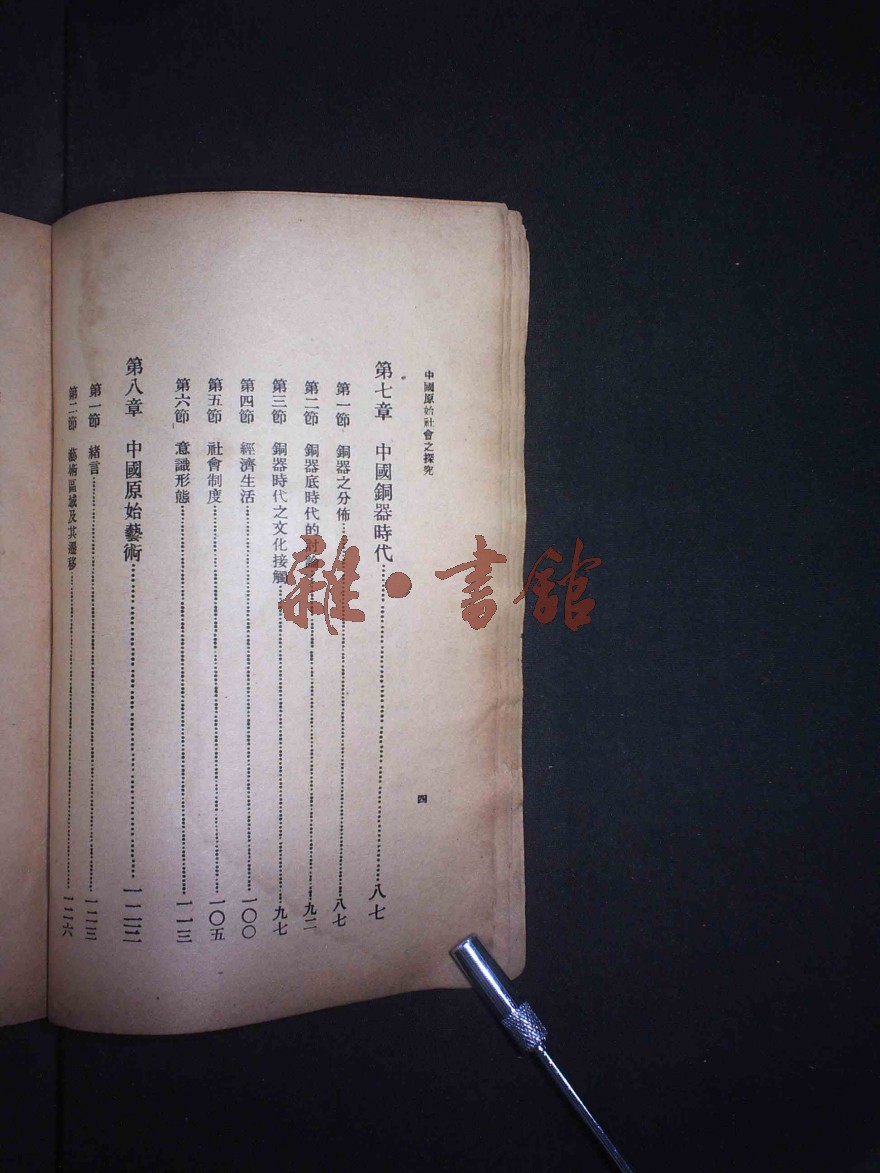 中國原始社會之探究
四
第七章 中國銅器時代……八七
第一節 銅器之分佈……八七
第二節 銅器底時代的討論……九二
第三節 銅器時代之文化接觸……九七
第四節 經濟生活……一〇〇
第五節 社會制度……一〇五
第六節 意識形態……一一三
第八章 中國原始藝術……一二三
第一節 緒言……一二三
第二節 藝術區域及其遷移……一二六
雜·書館